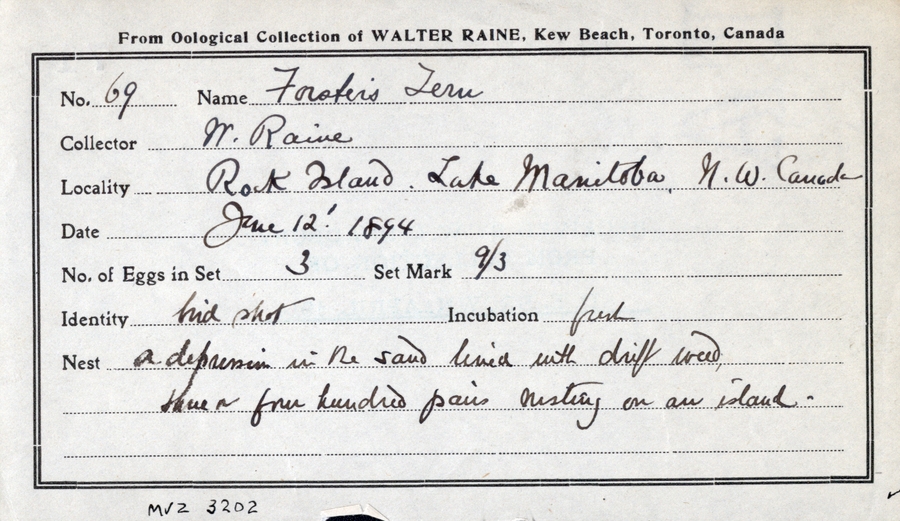 From Oological Collection of WALTER RAINE, Kew Beach, Toronto, Canada
No. 69 Name Forsters Tern
Collector W. Raine
Locality Rock Island. Lake Manitoba, N.W. Canada
Date June 12' 1894
No. of Eggs in Set 3 Set Mark 9/3
Identity bird shot Incubation fresh
Nest a depression in the sand lined with drift weed,
three or four hundred pairs nesting on an island.
MVZ 3202